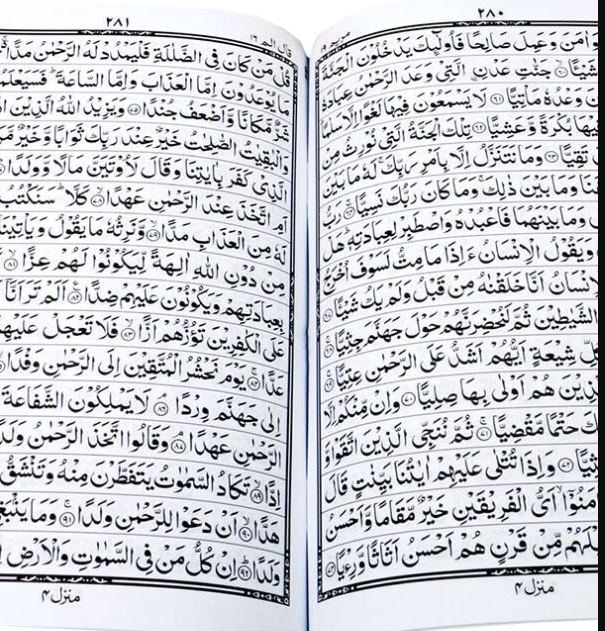 ٢٨٠
وَامَنَ وَعَمِلَ صَالِحًا فَاُولٰٓئِكَ يَدْخُلُوْنَ الْجَنَّةَ
شَيْئًا ۙ جَنّٰتِ عَدْنِ ࣙالَّتِيْ وَعَدَ الرَّحْمٰنُ عِبَادَهٗ
وَعْدُهٗ مَاْتِيًّا ۝ لَا يَسْمَعُوْنَ فِيْهَا لَغْوًا اِلَّا سَلٰمًا
فِيْهَا بُكْرَةً وَّعَشِيًّا ۝ تِلْكَ الْجَنَّةُ الَّتِيْ نُوْرِثُ مِنْ
تَقِيًّا ۝ وَمَا نَتَنَزَّلُ اِلَّا بِاَمْرِ رَبِّكَ ۚ لَهٗ مَا بَيْنَ
وَمَا بَيْنَ ذٰلِكَ ۚ وَمَا كَانَ رَبُّكَ نَسِيًّا ۝ رَبُّ
وَمَا بَيْنَهُمَا فَاعْبُدْهُ وَاصْطَبِرْ لِعِبَادَتِهٖ ؕ هَلْ
وَيَقُوْلُ الْاِنْسَانُ ءَاِذَا مَا مِتُّ لَسَوْفَ اُخْرَجُ
الْاِنْسَانُ اَنَّا خَلَقْنٰهُ مِنْ قَبْلُ وَلَمْ يَكُ شَيْئًا ۝
وَالشَّيٰطِيْنَ ثُمَّ لَنُحْضِرَنَّهُمْ حَوْلَ جَهَنَّمَ جِثِيًّا ۝
كُلِّ شِيْعَةٍ اَيُّهُمْ اَشَدُّ عَلَى الرَّحْمٰنِ عِتِيًّا ۝
بِالَّذِيْنَ هُمْ اَوْلٰى بِهَا صِلِيًّا ۝ وَاِنْ مِّنْكُمْ اِلَّا
حَتْمًا مَّقْضِيًّا ۝ ثُمَّ نُنَجِّي الَّذِيْنَ اتَّقَوْا وَّ
جِثِيًّا ۝ وَاِذَا تُتْلٰى عَلَيْهِمْ اٰيٰتُنَا بَيِّنٰتٍ قَالَ
اٰمَنُوْٓا ۙ اَيُّ الْفَرِيْقَيْنِ خَيْرٌ مَّقَامًا وَّاَحْسَنُ
قَبْلَهُمْ مِّنْ قَرْنٍ هُمْ اَحْسَنُ اَثَاثًا وَّرِءْيًا ۝
منزل ٤
٢٨١
قال الم ١٦
قُلْ مَنْ كَانَ فِي الضَّلٰلَةِ فَلْيَمْدُدْ لَهُ الرَّحْمٰنُ مَدًّا
مَا يُوْعَدُوْنَ اِمَّا الْعَذَابَ وَاِمَّا السَّاعَةَ ؕ فَسَيَعْلَمُوْنَ
شَرٌّ مَّكَانًا وَّاَضْعَفُ جُنْدًا ۝ وَيَزِيْدُ اللّٰهُ الَّذِيْنَ
وَالْبٰقِيٰتُ الصّٰلِحٰتُ خَيْرٌ عِنْدَ رَبِّكَ ثَوَابًا وَّخَيْرٌ
الَّذِيْ كَفَرَ بِاٰيٰتِنَا وَقَالَ لَاُوْتَيَنَّ مَالًا وَّوَلَدًا
اَمِ اتَّخَذَ عِنْدَ الرَّحْمٰنِ عَهْدًا ۝ كَلَّا ؕ سَنَكْتُبُ
لَهٗ مِنَ الْعَذَابِ مَدًّا ۝ وَّنَرِثُهٗ مَا يَقُوْلُ وَيَاْتِيْنَا
مِنْ دُوْنِ اللّٰهِ اٰلِهَةً لِّيَكُوْنُوْا لَهُمْ عِزًّا ۝
بِعِبَادَتِهِمْ وَيَكُوْنُوْنَ عَلَيْهِمْ ضِدًّا ۝ اَلَمْ تَرَ اَنَّا
عَلَى الْكٰفِرِيْنَ تَؤُزُّهُمْ اَزًّا ۝ فَلَا تَعْجَلْ عَلَيْهِمْ
عَدًّا ۝ يَوْمَ نَحْشُرُ الْمُتَّقِيْنَ اِلَى الرَّحْمٰنِ وَفْدًا ۝
اِلٰى جَهَنَّمَ وِرْدًا ۝ لَا يَمْلِكُوْنَ الشَّفَاعَةَ
الرَّحْمٰنِ عَهْدًا ۝ وَقَالُوا اتَّخَذَ الرَّحْمٰنُ وَلَدًا
اِدًّا ۝ تَكَادُ السَّمٰوٰتُ يَتَفَطَّرْنَ مِنْهُ وَتَنْشَقُّ
هَدًّا ۝ اَنْ دَعَوْا لِلرَّحْمٰنِ وَلَدًا ۝ وَمَا يَنْۢبَغِيْ
وَلَدًا ۝ اِنْ كُلُّ مَنْ فِي السَّمٰوٰتِ وَالْاَرْضِ
منزل ٤